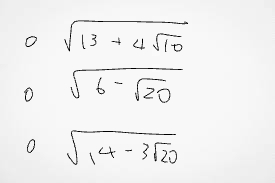 o √(13 + 4√10)
o √(6 - √20)
o √(14 - 3√20)